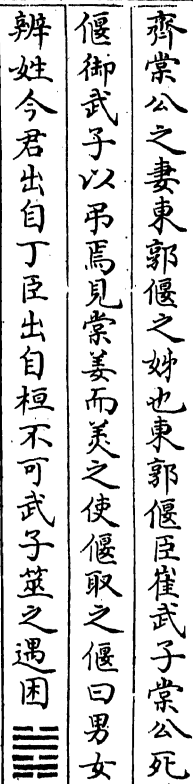 齊棠公之妻東郭偃之姊也東郭偃臣崔武子棠公死
偃御武子以吊焉見棠姜而美之使偃取之偃曰男女
辨姓今君出自丁臣出自桓不可武子筮之遇困䷮